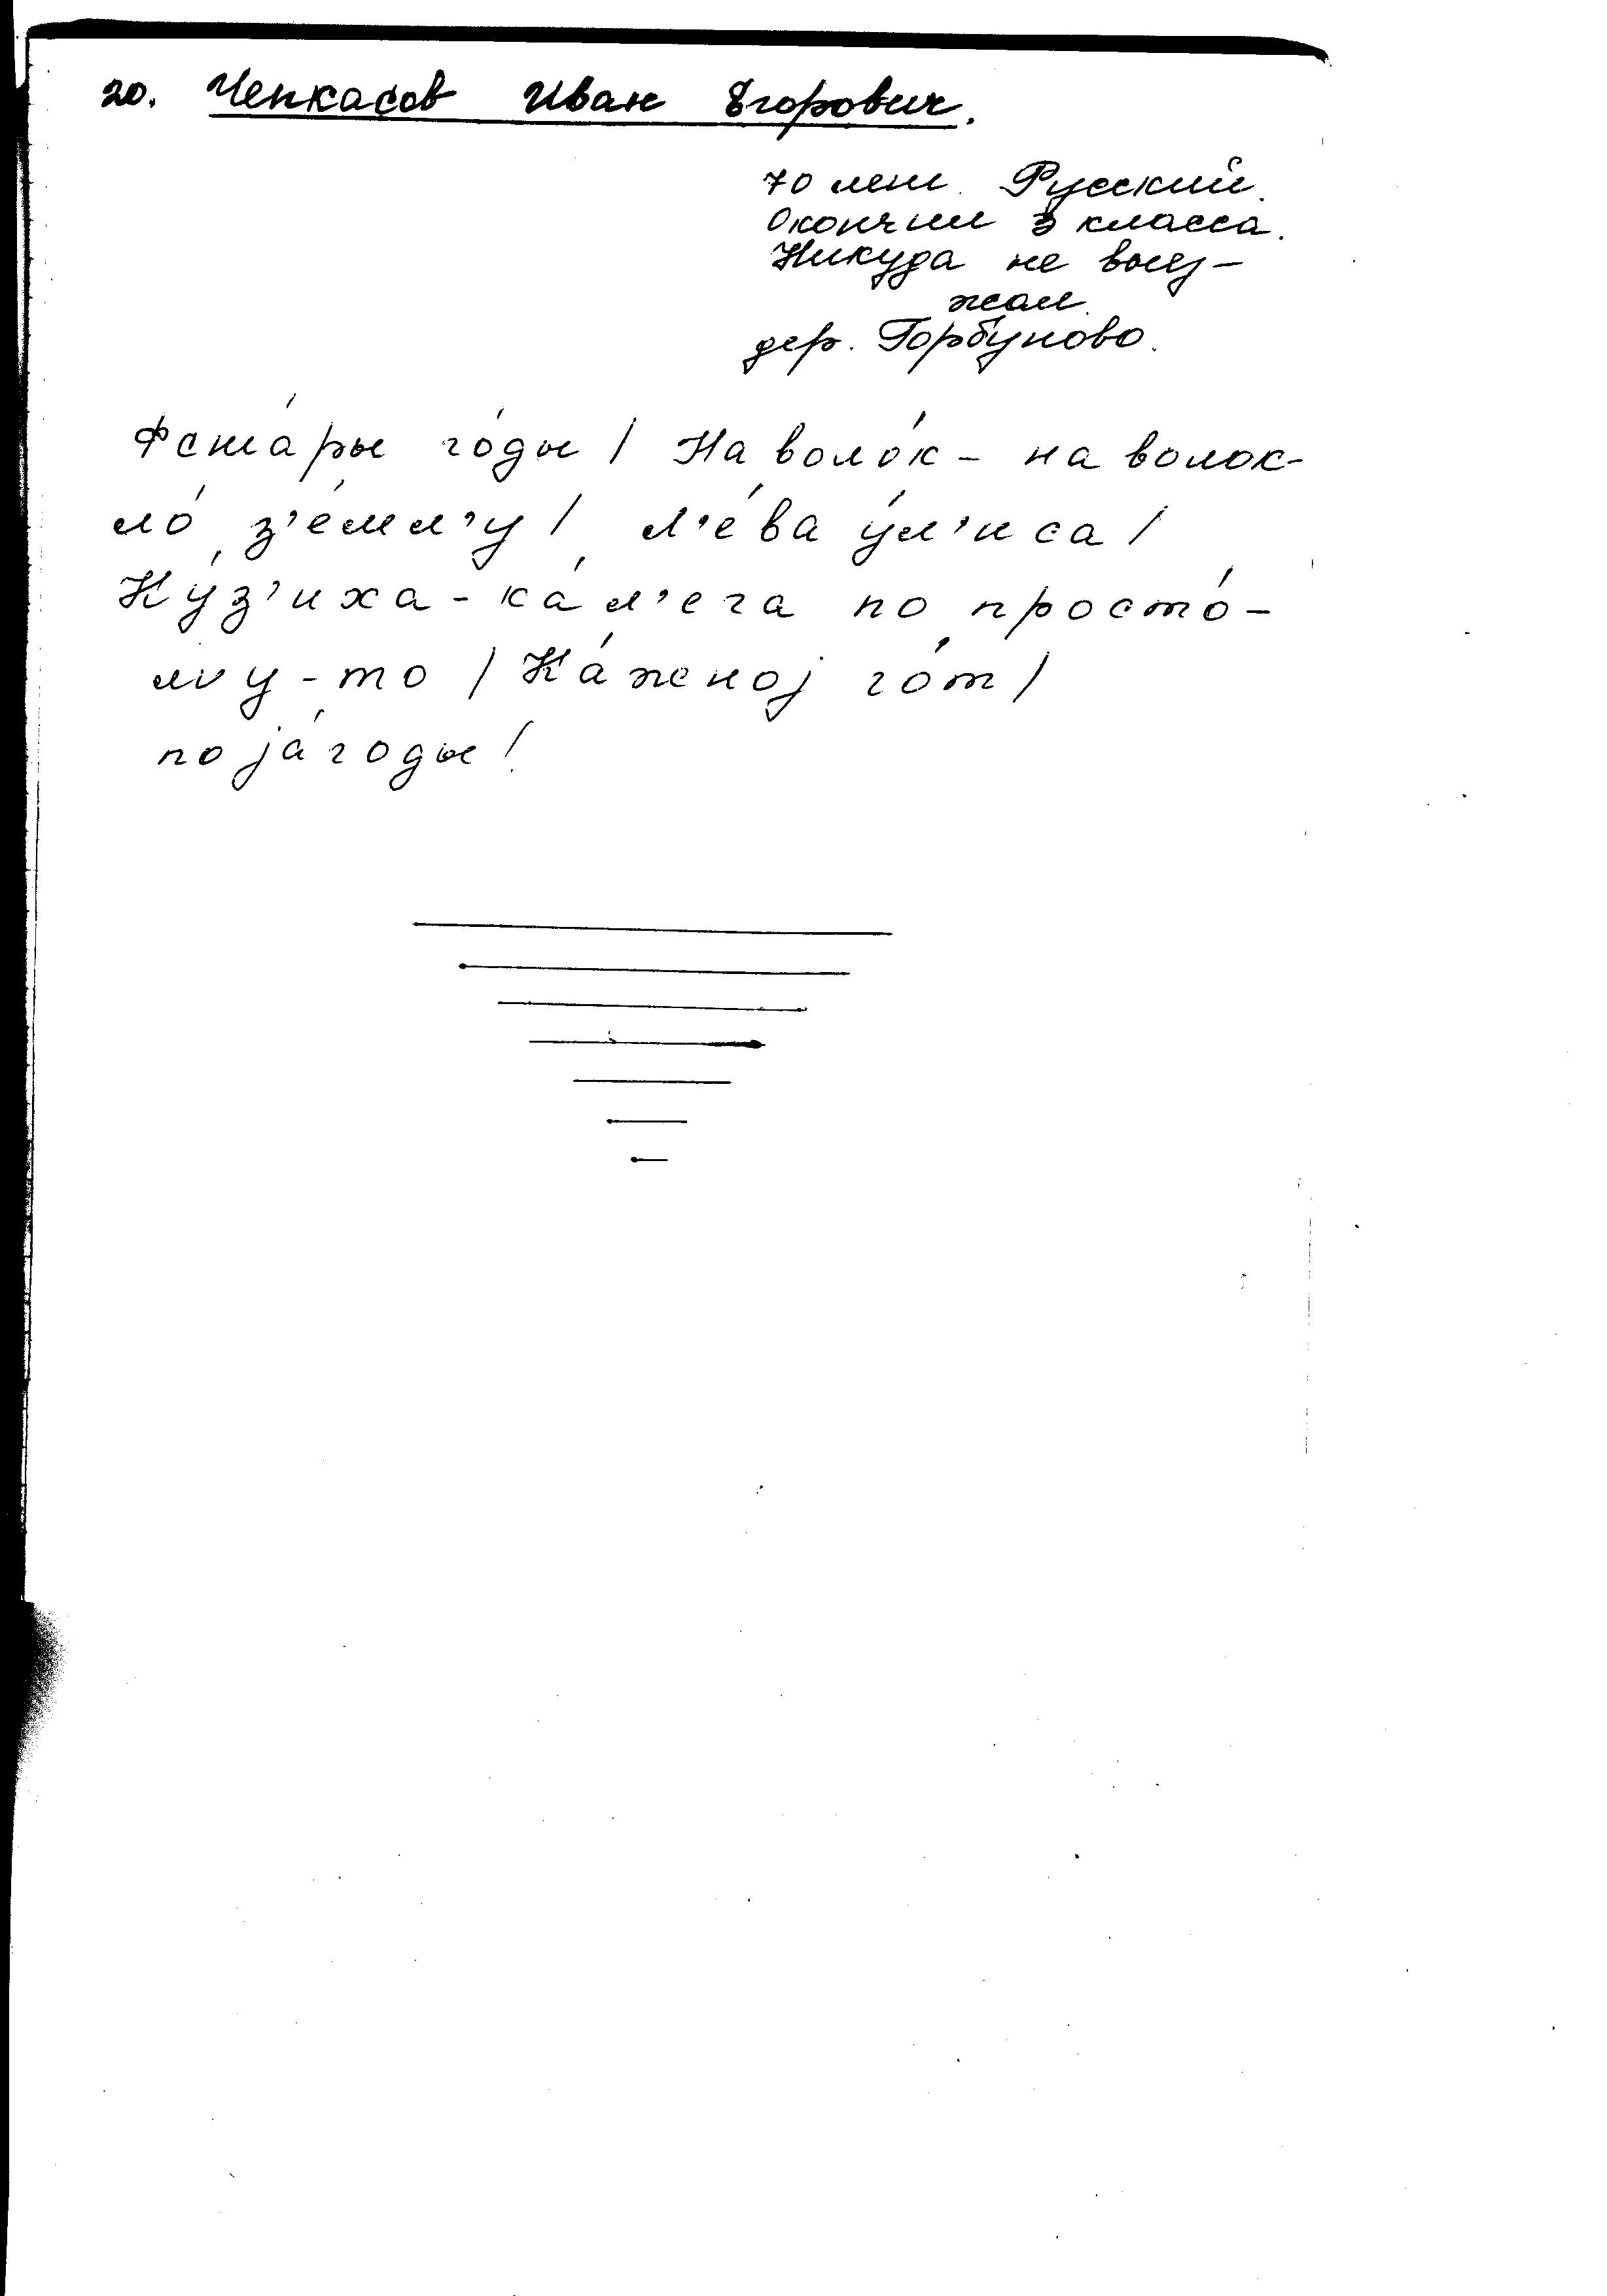 20. Чепкасов Иван Егорович.
70 лет. Русский.
Окончил 3 класса.
Никуда не выез-
жал.
дер. Горбуново.
Фста́ры го́ды / На воло́к - на волок-
ло́ з'е́мл'у / Л'е́ва у́л'иса /
Ку́з'иха - ка́л'ега по просто́-
му-то / Ка́жной го́т /
по já годы /